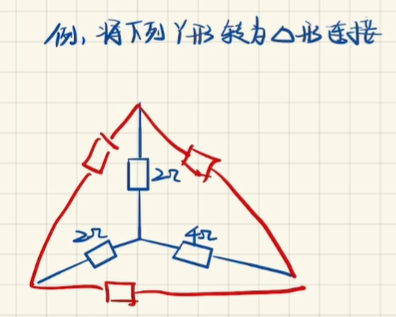 例，将下列Y形转为△形连接
2Ω
2Ω
4Ω